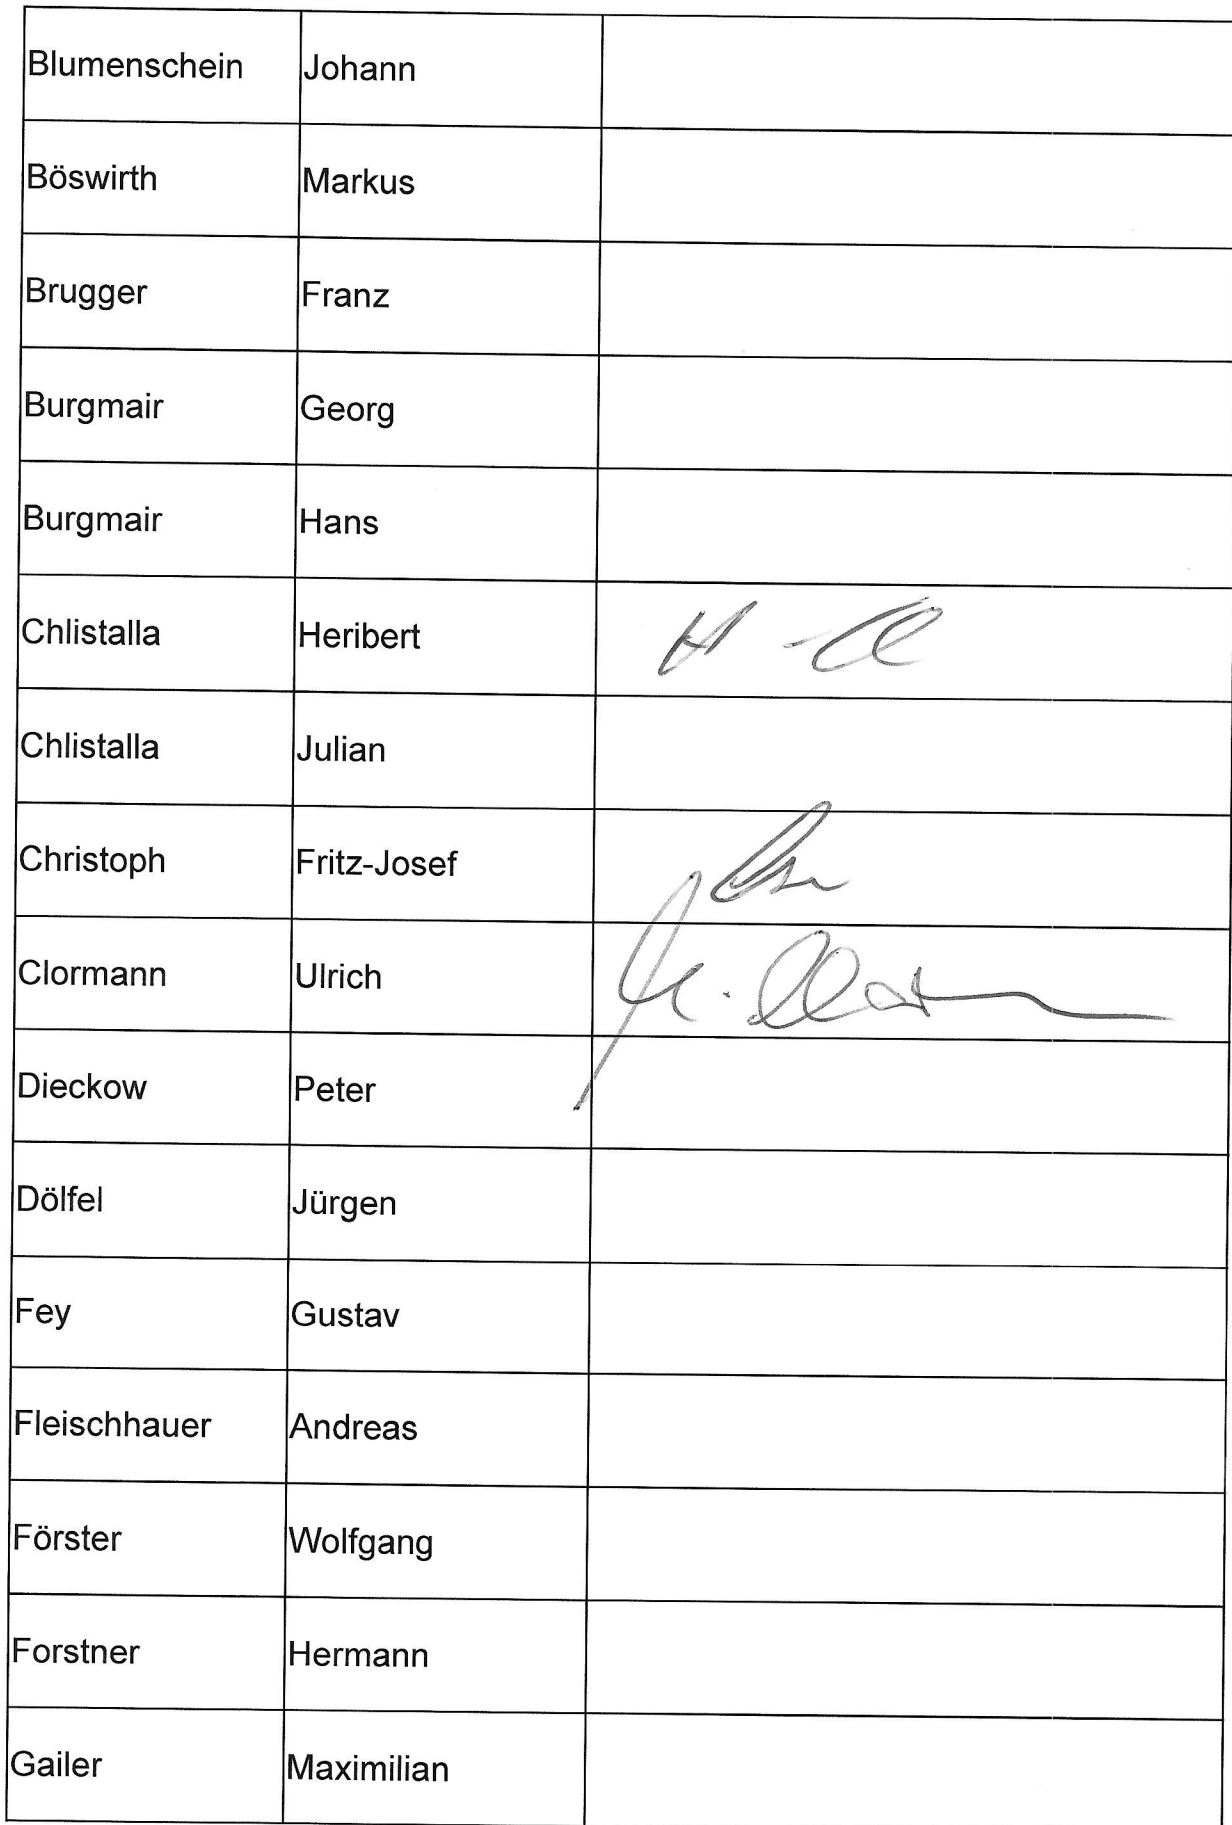 Blumenschein Johann
Böswirth Markus
Brugger Franz
Burgmair Georg
Burgmair Hans
Chlistalla Heribert
Chlistalla Julian
Christoph Fritz-Josef
Clormann Ulrich
Dieckow Peter
Dölfel Jürgen
Fey Gustav
Fleischhauer Andreas
Förster Wolfgang
Forstner Hermann
Gailer Maximilian